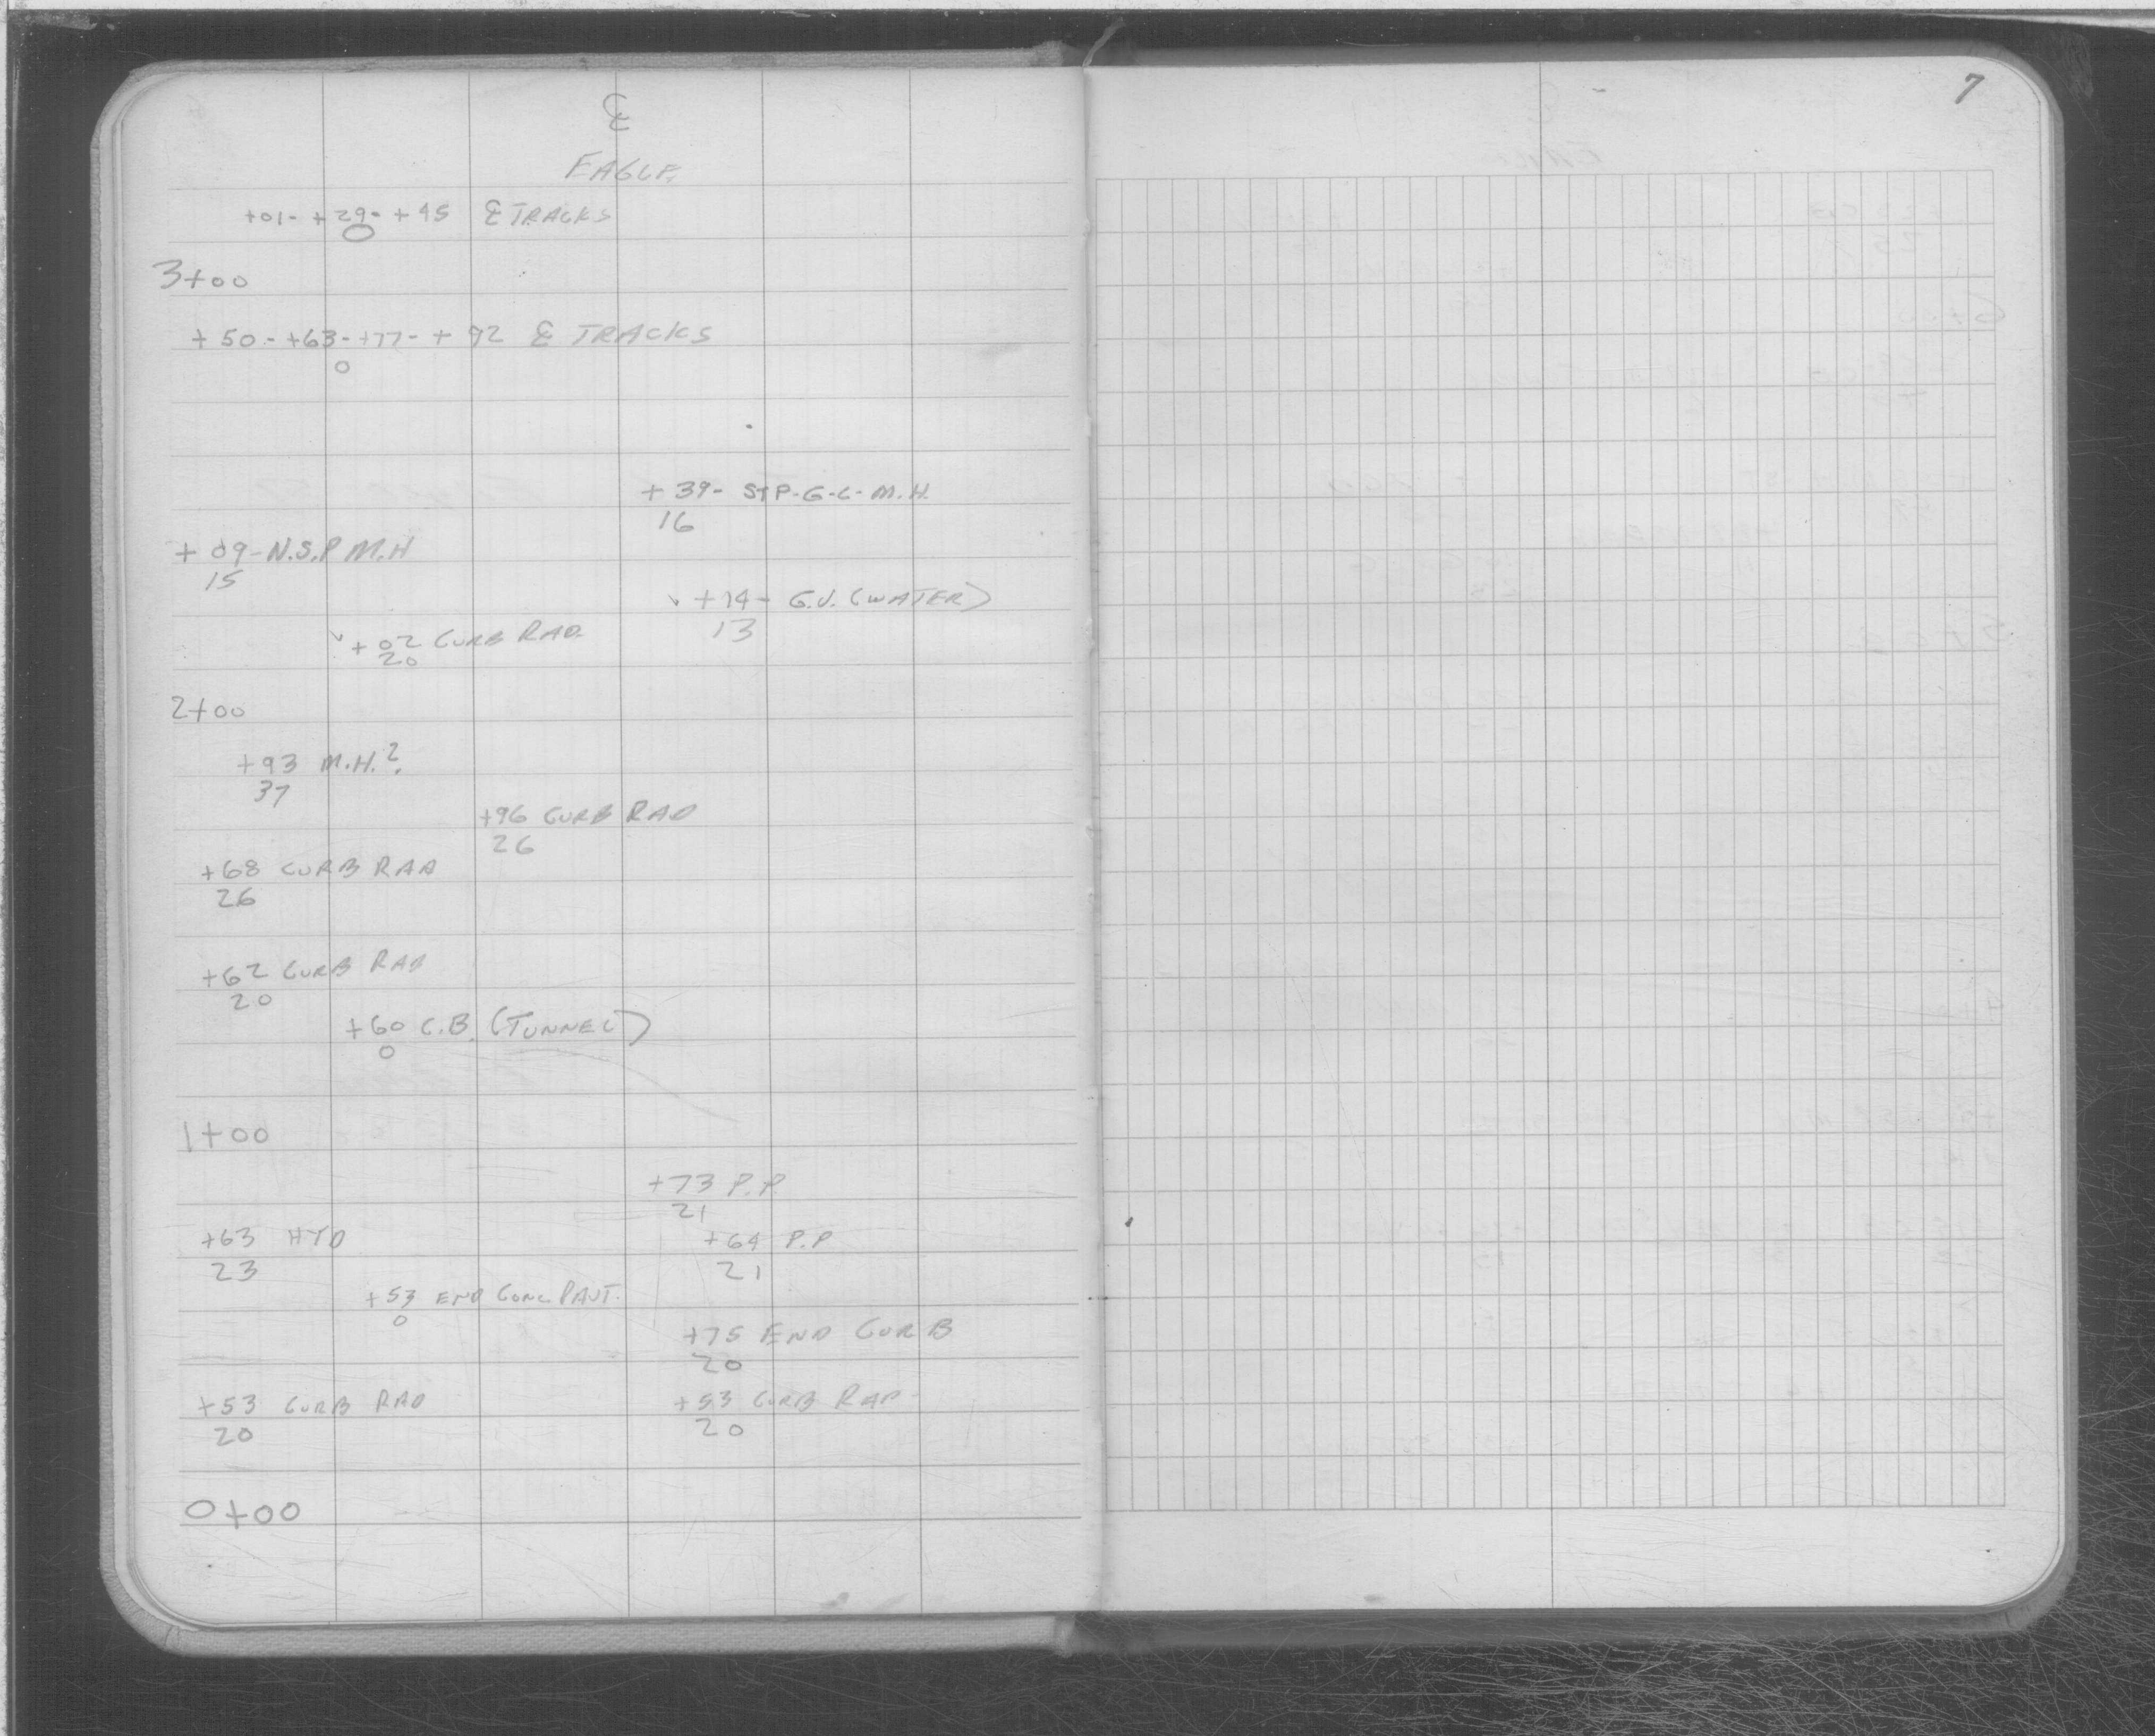 7
℄
EAGLE
+01- +29- +45 ℄ TRACKS
0
3+00
+50- +63- +77- +92 ℄ TRACKS
0
+39- STP-G-C-M.H.
16
+09-N.S.P M.H
15
+14- G.V. (WATER)
13
+02 CURB RAD.
20
2+00
+93 M.H.?
37
+96 CURB RAD
26
+68 CURB RAD
26
+62 CURB RAD
20
+60 C.B. (TUNNEL)
0
1+00
+73 P.P.
21
+63 HYD +64 P.P
23 21
+53 END CONC PAVT.
0
+75 END CURB
20
+53 CURB RAD +53 CURB RAD
20 20
0+00